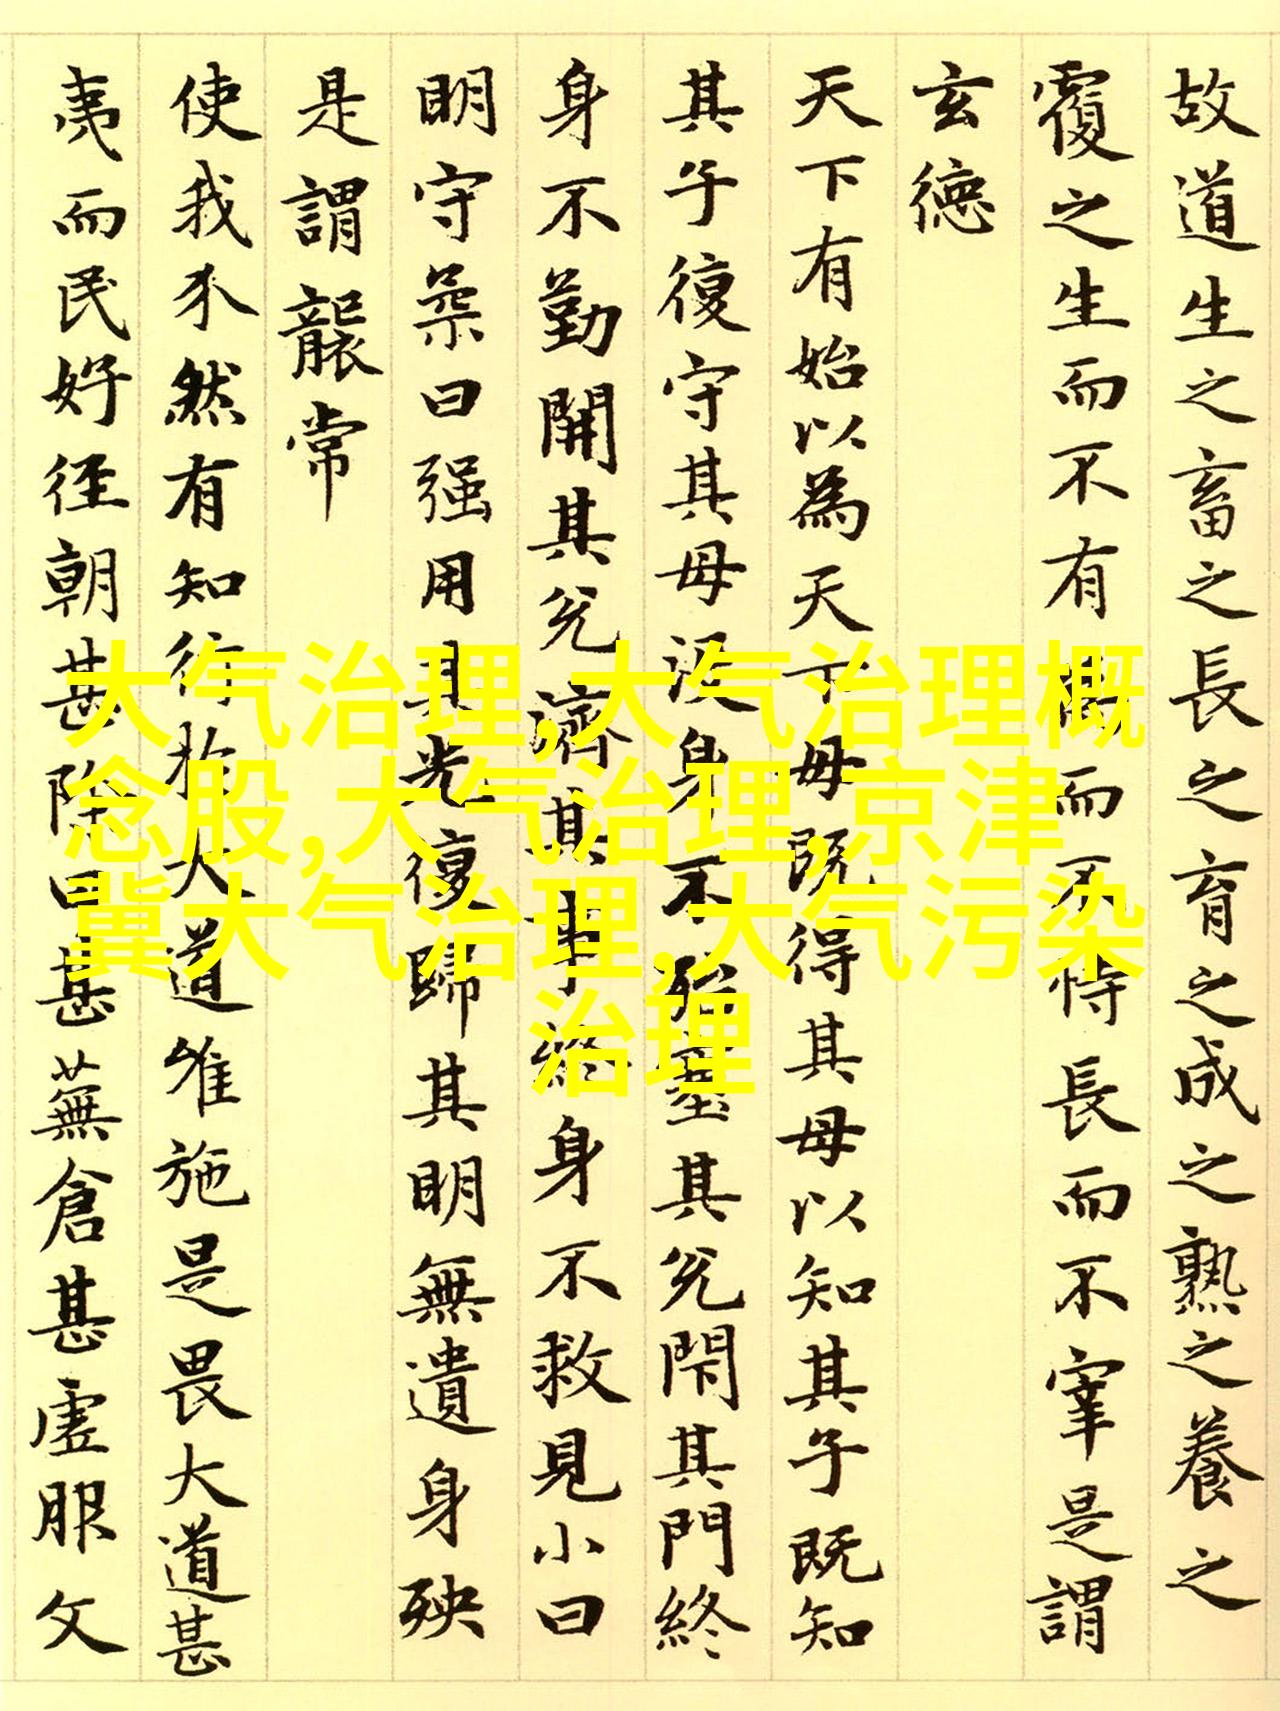 故道生之畜之長之育之成之熟之養之
覆之生而不有為而不恃長而不宰是謂
玄德
天下有始以為天下母既得其母以知其子既知
其子復守其母没身不殆塞其兌閇其門終
身不勤開其兌濟其事終身不救見小曰
明守柔曰强用其光復歸其明無遺身殃
是謂襲常
使我介然有知行於大道唯施是畏大道甚
夷而民好徑朝甚除田甚蕪倉甚虛服文
大气治理,大气治理概
念股,大气治理,京津
冀大气治理,大气污染
治理